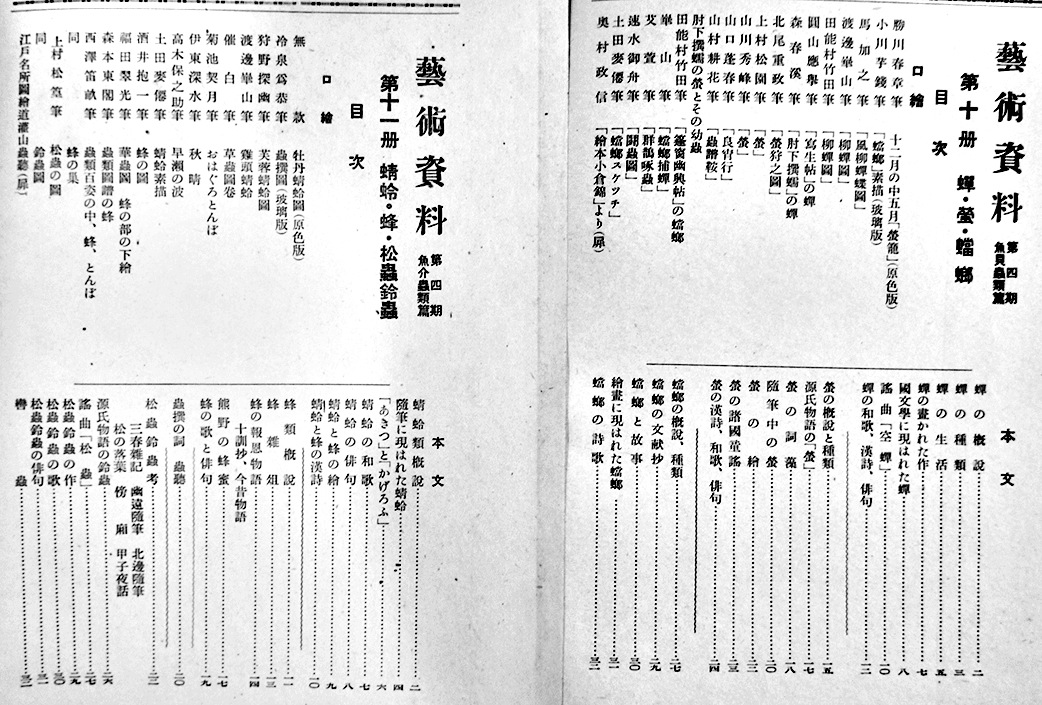 藝術資料 第四期 魚貝蟲類篇
第十册 蟬・螢・蟷螂
目次
口繪
勝川春章筆 十二月の中五月「螢籠」(原色版)
小川芋錢筆 「蟷螂」素描(玻璃版)
馬加之筆 「風柳蟬蝶圖」
渡邊崋山筆 「柳蟬圖」
田能村竹田筆 「柳蟬圖」
圓山應擧筆 「寫生帖」の蟬
森春溪筆 「肘下撰蠕」の蟬
北尾重政筆 「螢狩之圖」
上村松園筆 「螢」
山川秀峰筆 「螢」
山口蓬春筆 「良宵行」
山村耕花筆 「蟲譜鞍」
肘下撰蠕の螢とその幼蟲
田能村竹田筆 「篷窗幽興帖」の蟷螂
崋山筆 「蟷螂捕蟬」
艾萱筆 「胖鵲啄蟲」
速水御舟筆 「鬪蟲圖」
土田麥僊筆 「蟷螂スケツチ」
奥村政信 「繪本小倉錦」より(扉)
本文
蟬の概說…二
蟬の種類…三
蟬の生活…五
蟬の畫かれた作…七
國文學に現はれた蟬…八
謠曲「空蟬」…一〇
蟬の和歌、漢詩、俳句…一二
螢の概說と種類…一五
源氏物語の「螢」…一七
螢の詞藻…一八
隨筆中の螢…二〇
螢の繪…二三
螢の諸國童謠…二三
螢の漢詩、和歌、俳句…二四
蟷螂の槪說、種類…二七
蟷螂の文献抄…二九
蟷螂と故事…三〇
繪畫に現はれた蟷螂…三一
蟷螂の詩歌…三二
藝術資料 第四期 魚介蟲類篇
第十一册 蜻蛉・蜂・松蟲鈴蟲
目次
口繪
無款 牡丹蜻蛉圖(原色版)
冷泉爲恭筆 蟲撰圖(玻璃版)
狩野探幽筆 芙蓉蜻蛉圖
渡邊崋山筆 雞頭蜻蛉
催白筆 草蟲圖卷
菊池契月筆 おはぐろとんぼ
伊東深水筆 秋晴
高木保之助筆 早瀨の波
土田麥僊筆 蜻蛉素描
酒井抱一筆 蜂の圖
福田翠光筆 華蟲圖 蜂の部の下繪
森本東閣筆 蟲類圖譜の蜂
西澤笛畝筆 蟲類百姿の中、蜂、とんぼ
同 蜂の巢
上村松篁筆 松蟲の圖
同 鈴蟲圖
江戸名所圖繪道灌山蟲聽(扉)
本文
蜻蛉類槪說…二
隨筆に現はれた蜻蛉…四
「あきつ」と「かげろふ」…六
蜻蛉の和歌…七
蜻蛉の俳句…八
蜻蛉と蜂の繪…九
蜻蛉と蜂の漢詩…一〇
蜂類槪說…一一
蜂雜俎…一三
蜂の報恩物語…一四
十訓抄、今昔物語
熊野の蜂蜜…一七
蜂の歌と俳句…一九
蟲撰の詞 蟲聽…二〇
松蟲鈴蟲考…二二
三春雜記 幽遠隨筆 北邊隨筆
松の落葉 傍廂 甲子夜話
源氏物語の鈴蟲…二六
謠曲「松蟲」…二七
松蟲鈴蟲の作…二九
松蟲鈴蟲の歌…三〇
松蟲鈴蟲の俳句…三一
轡蟲…三二